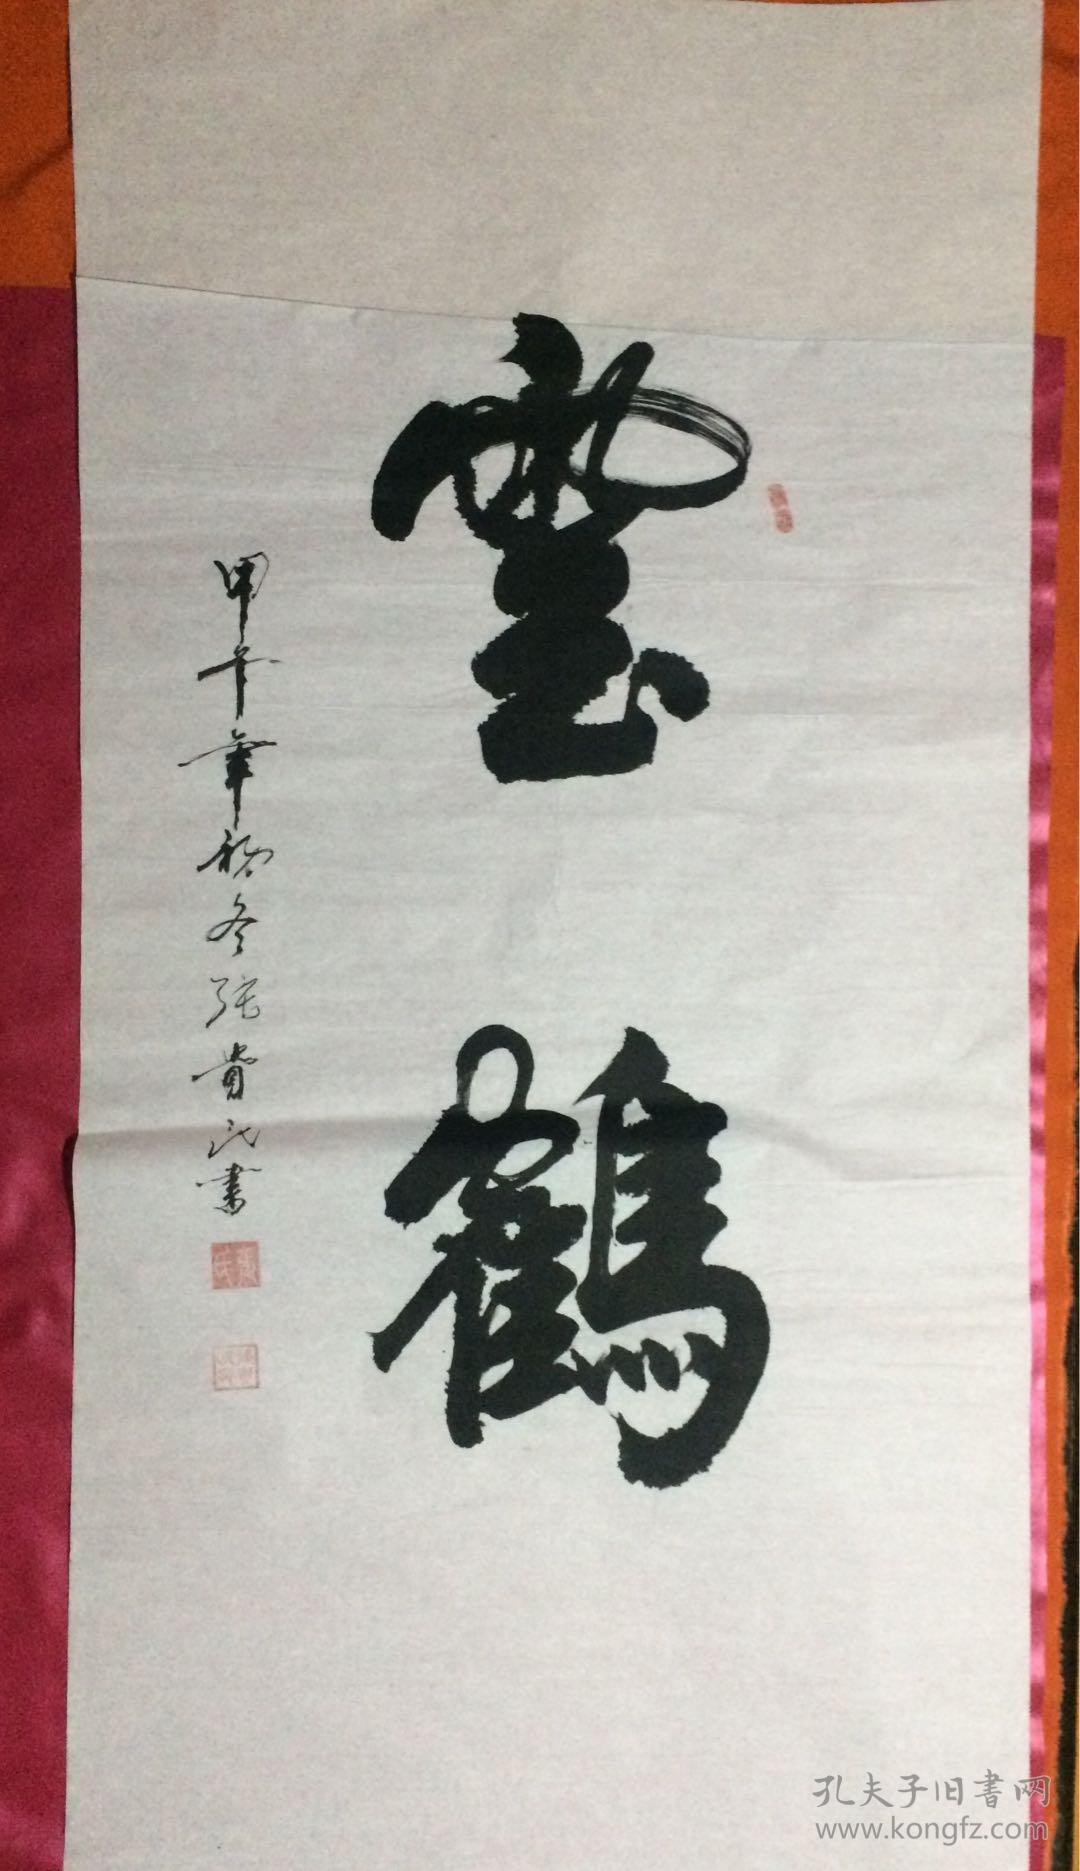 雲鶴
甲午年初冬張貴民書
孔夫子旧書网
www.kongfz.com